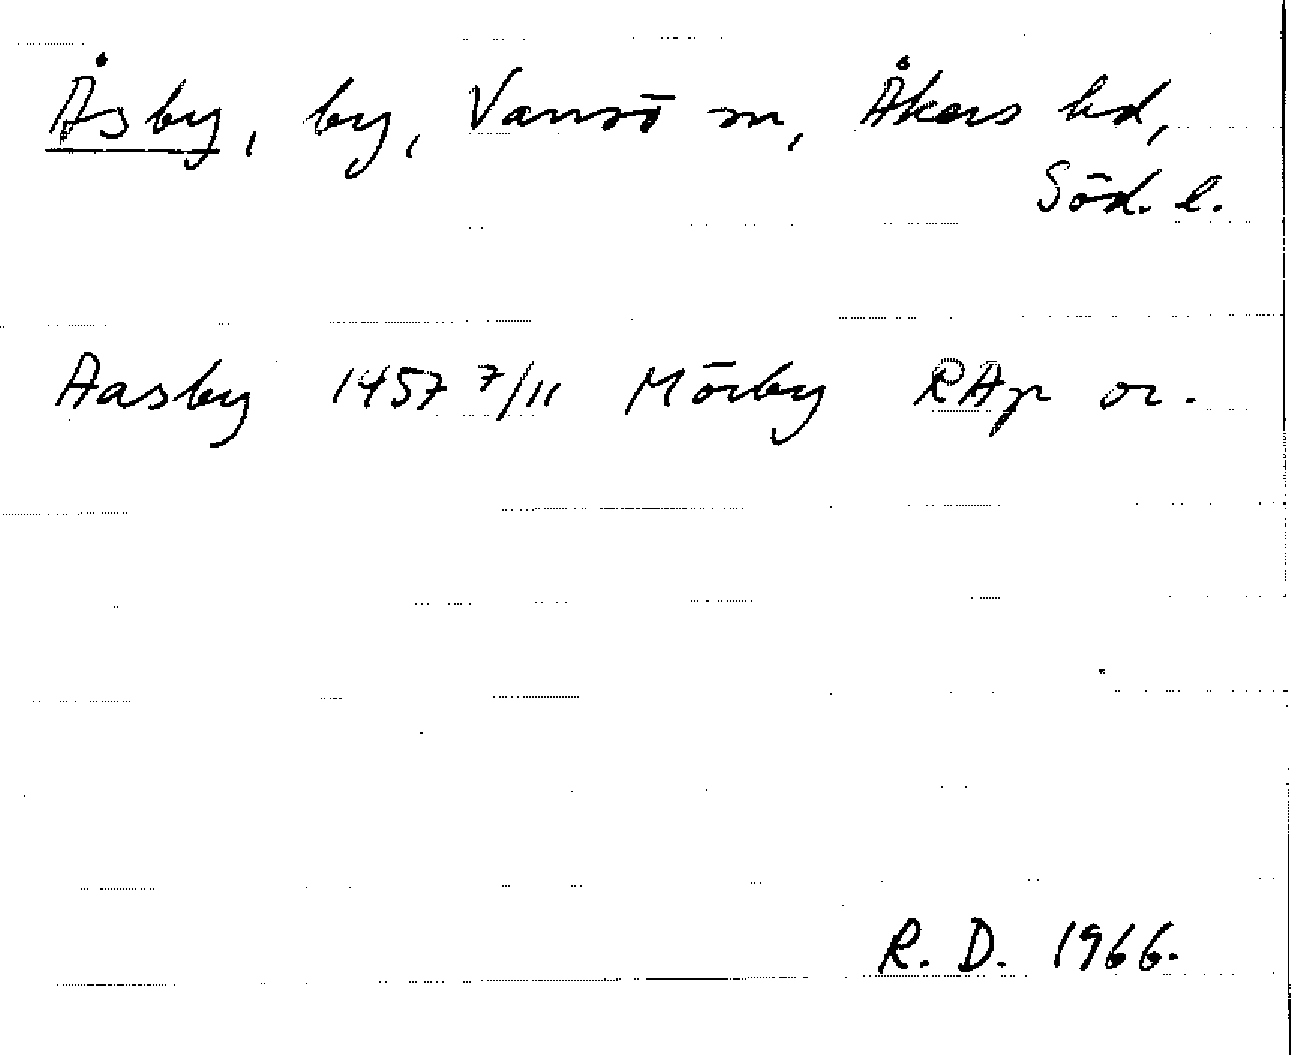 Åsby, by, Vansö sn, Åkers hd,
Söd. l.
Aasby 1457 7/11 Mörby RAp or.
R. D. 1966.